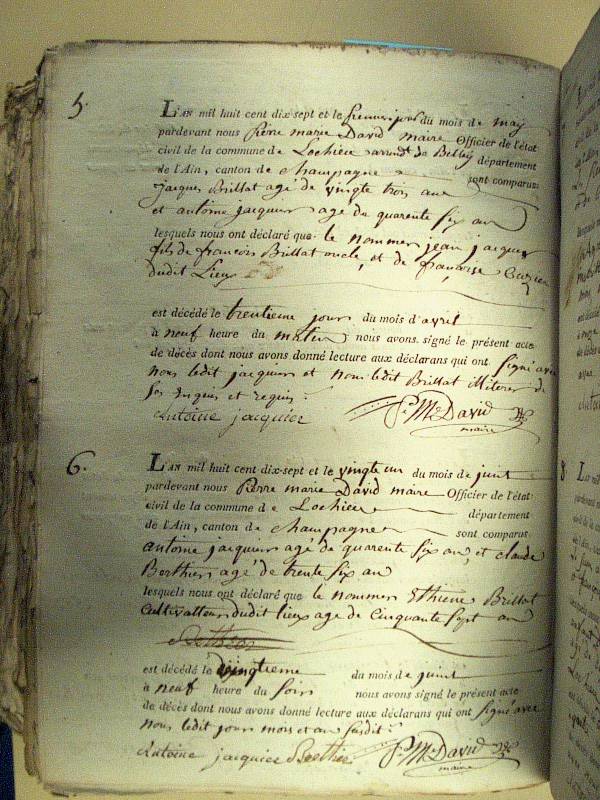 5.
L'AN mil huit cent dix-sept et le premier jour du mois de may
pardevant nous Pierre marie David maire Officier de l'état
civil de la commune de Lochieu arrondt de Belley département
de l'Ain, canton de champagne sont comparus
jacques Brillat agé de vingte trois ans
et antoine jacquier agé de quarente six an
lesquels nous ont déclaré que le nommer jean jacques
fils de francois Brillat oncle, et de françoise
dudit Lieux
est décédé le trentieme jours du mois d'avril
à neuf heure du matin nous avons signé le présent acte
de décès dont nous avons donné lecture aux déclarans qui ont signé avec
nous ledit jacquier et non ledit Brillat illiterer de
ce enquis et requis.
Antoine jacquier P. M. David
maire
6.
L'AN mil huit cent dix-sept et le vingte un du mois de juint
pardevant nous Pierre marie David maire Officier de l'état
civil de la commune de Lochieu département
de l'Ain, canton de champagne sont comparus
antoine jacquier agé de quarente six an, et claude
Berthier agé de trente six an
lesquels nous ont déclaré que le nommer Ethiene Brillat
cultivatteur dudit lieux age de cinquante sept an
est décédé le vingtieme du mois de juint
à neuf heure du soir nous avons signé le présent acte
de décès dont nous avons donné lecture aux déclarans qui ont signé avec
nous ledit jours mois et an susdit.
Antoine jacquier Berthier P. M. David
maire
8